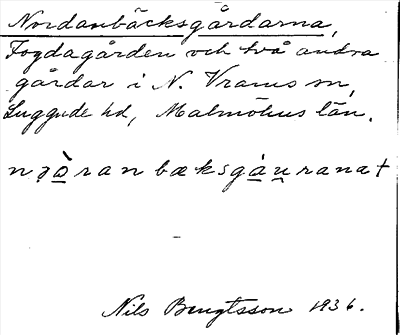 Nordanbäcksgårdarna,
Fogdagården och två andra
gårdar i N. Vrams sn,
Luggude hd, Malmöhus län.
Nils Bengtsson 1936.